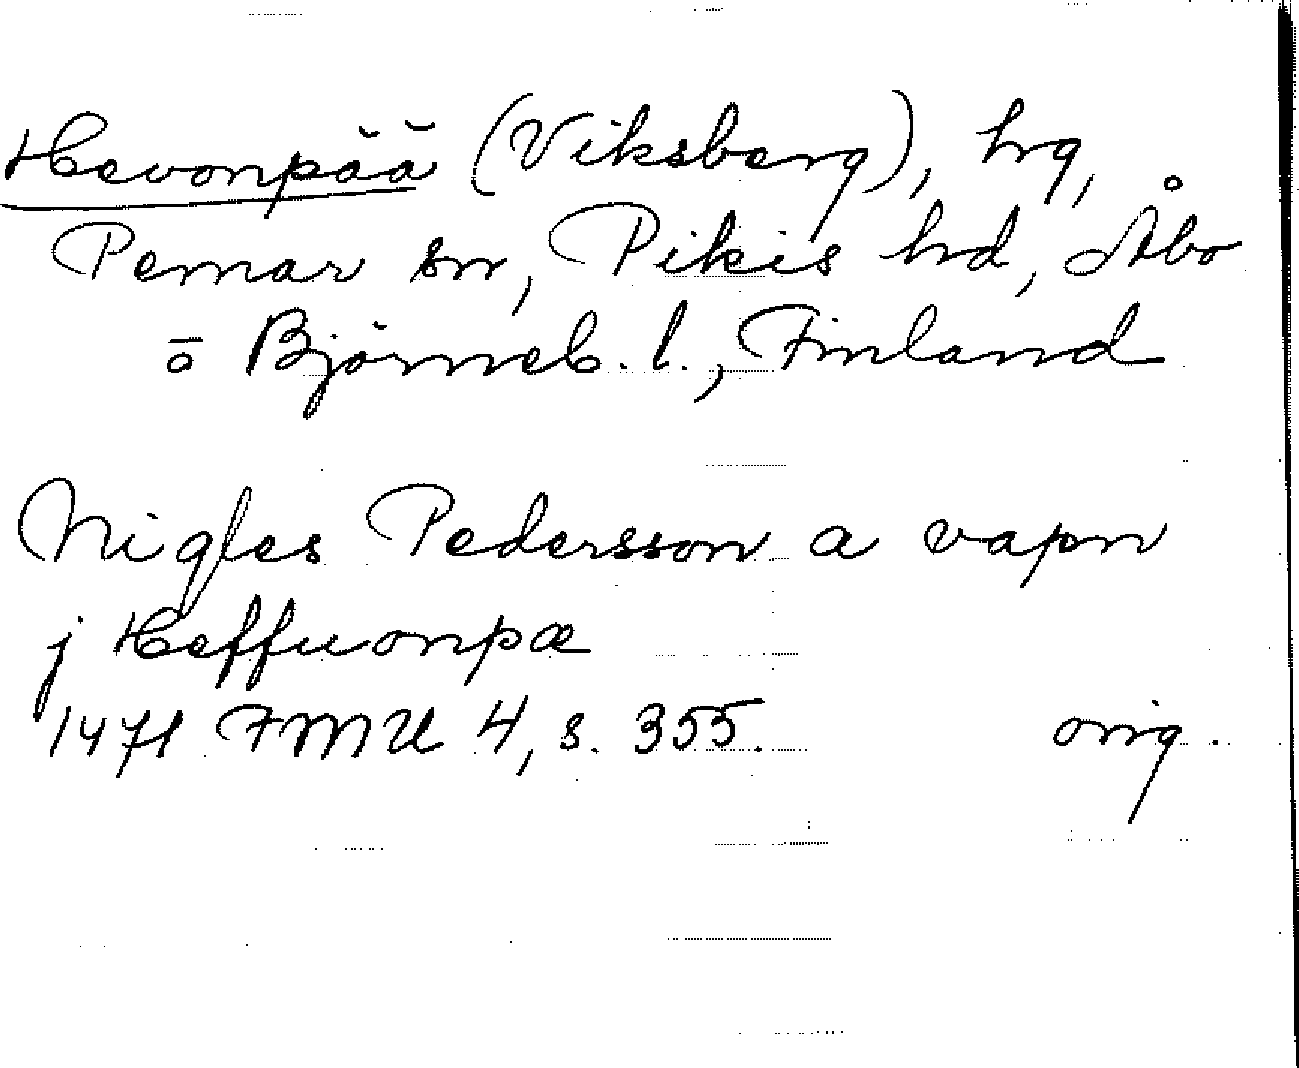 Hevonpää (Viksberg), hrg,
Pemar sn, Pikis hd, Åbo
o Björneb. l., Finland
Nigles Pedersson a vapn
j Heffuonpæ
1471 FMU 4, s. 355. orig.